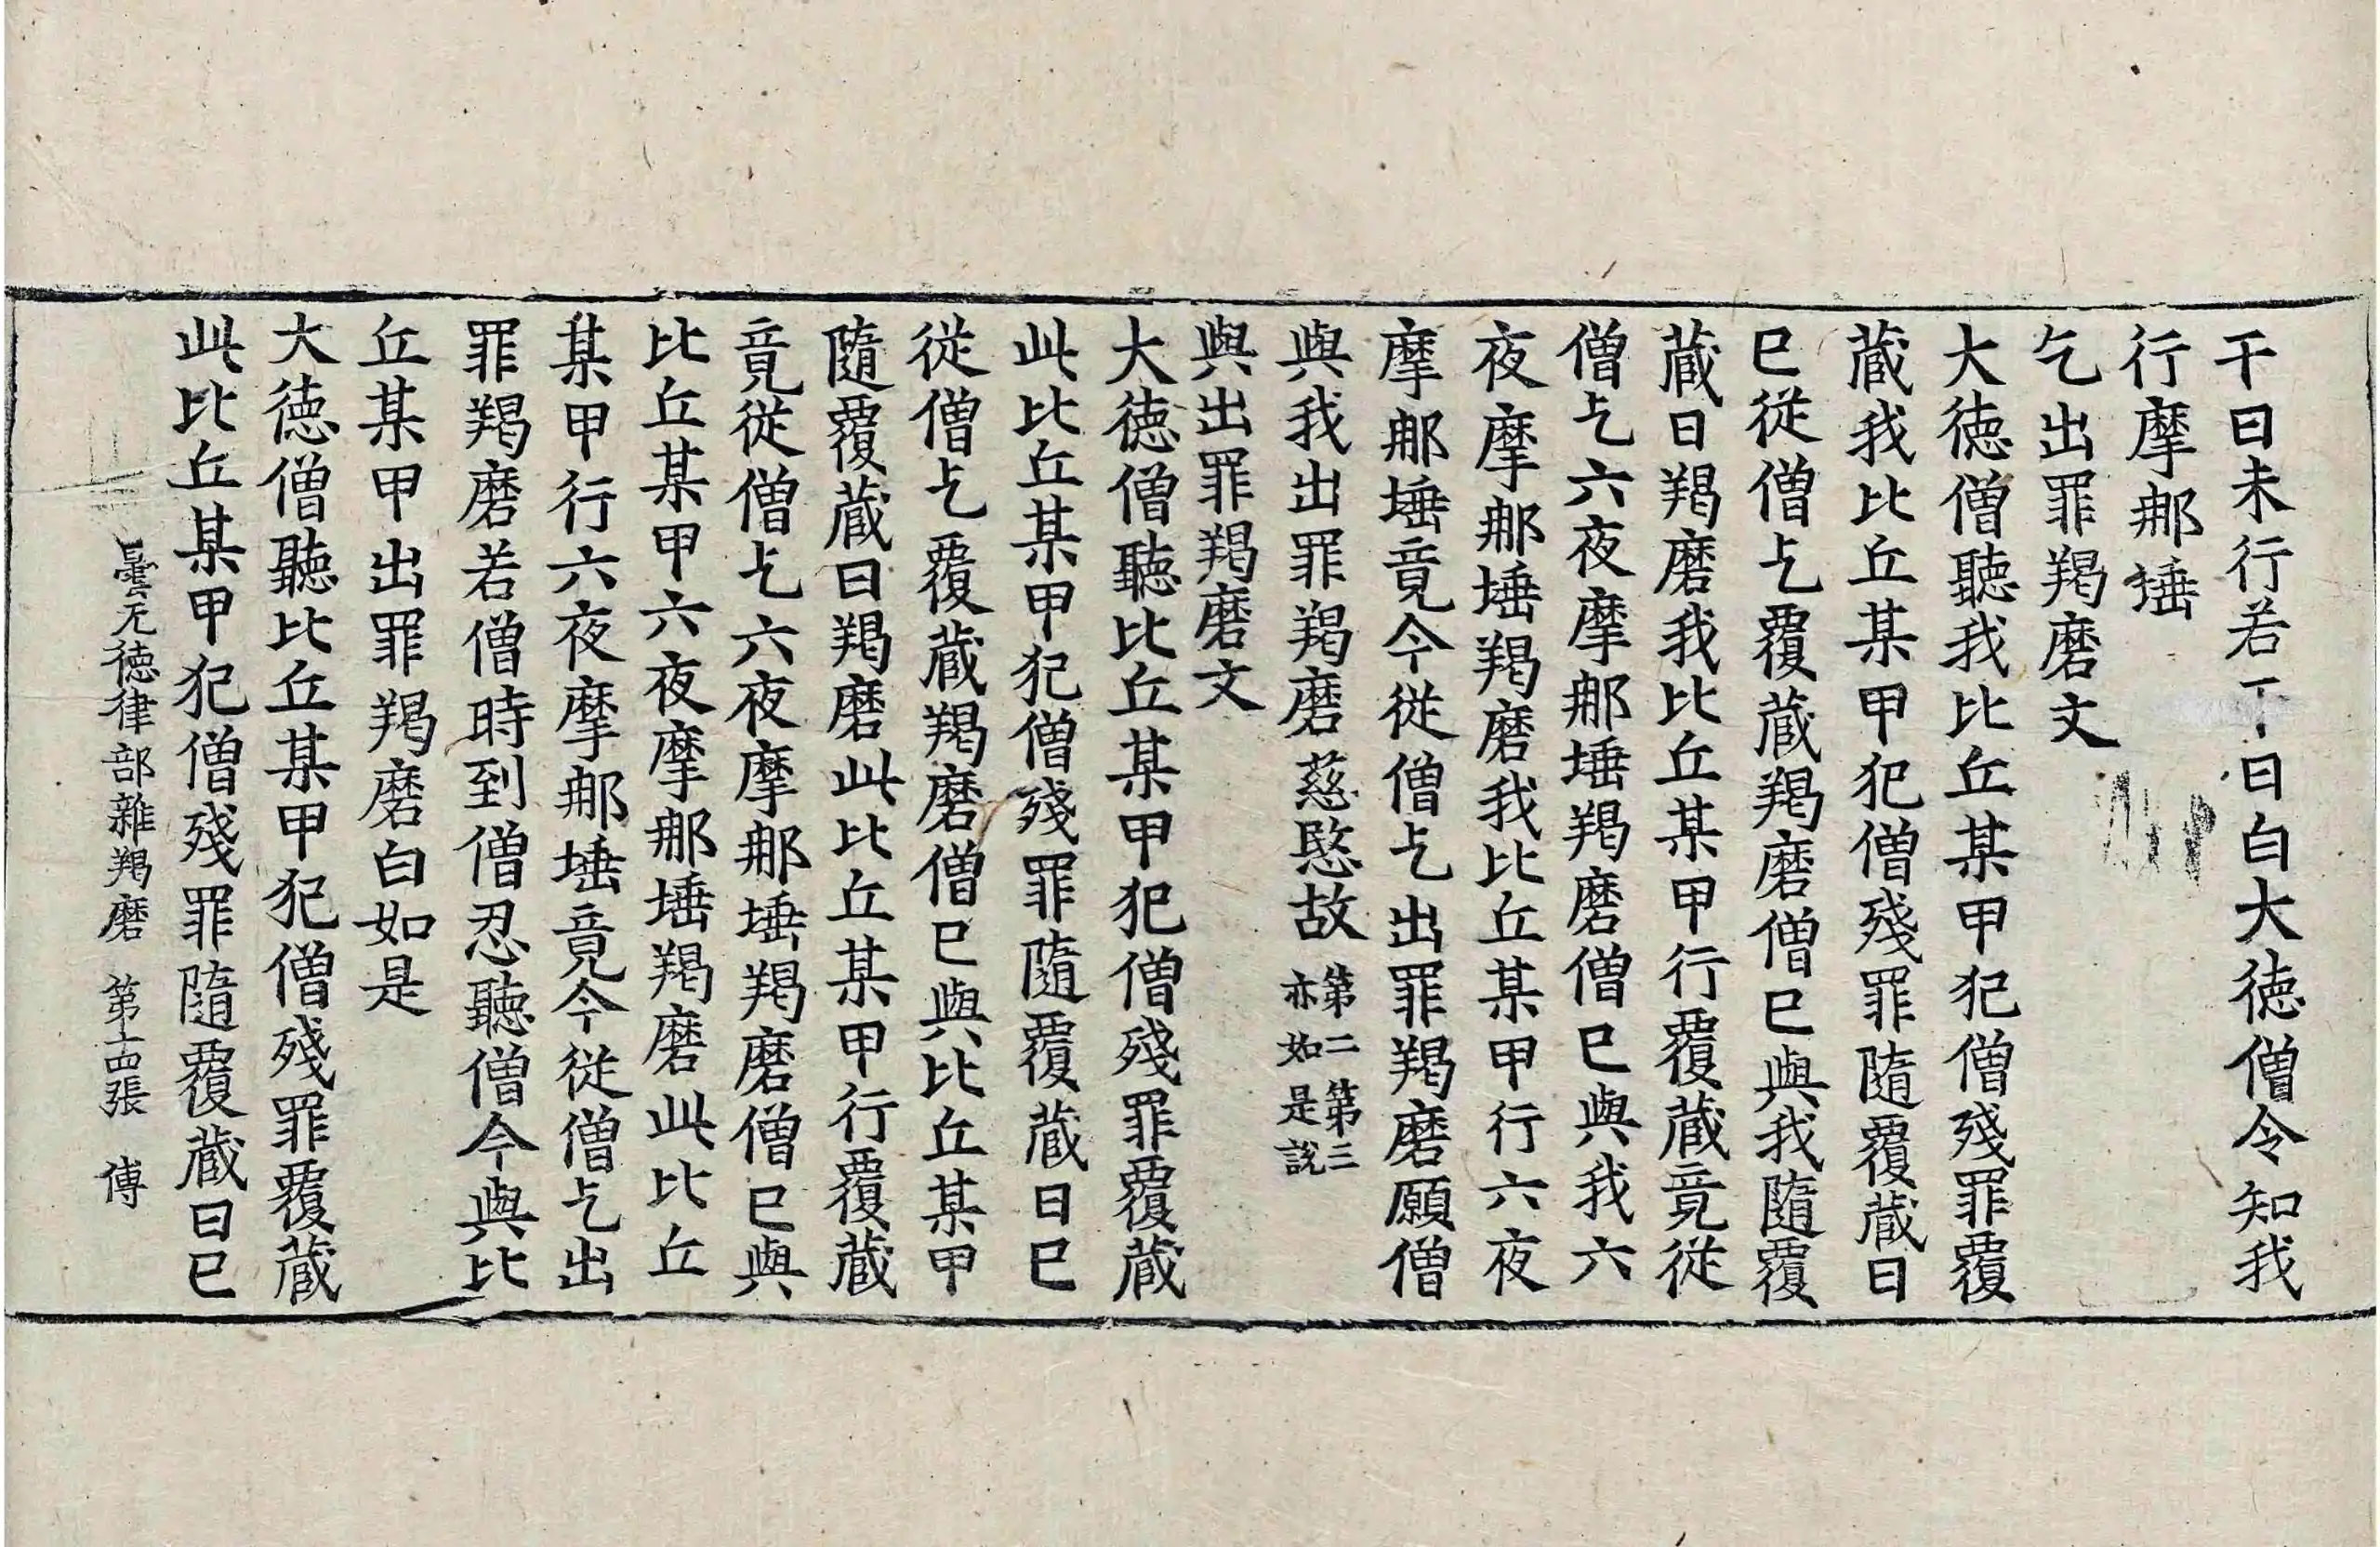 干日未行若干日白大徳僧令知我
行摩那埵
乞出罪羯磨文
大徳僧聽我比丘某甲犯僧殘罪覆
蔵我比丘某甲犯僧殘罪隨覆蔵日
已從僧乞覆蔵羯磨僧已與我隨覆
蔵日羯磨我比丘某甲行覆蔵竟從
僧乞六夜摩那埵羯磨僧已與我六
夜摩那埵羯磨我比丘某甲行六夜
摩那埵竟今從僧乞出罪羯磨願僧
與我出罪羯磨慈愍故第二第三亦如是說
與出罪羯磨文
大徳僧聽比丘某甲犯僧殘罪覆蔵
此比丘某甲犯僧殘罪隨覆蔵日已
從僧乞覆蔵羯磨僧已與比丘某甲
隨覆蔵日羯磨此比丘某甲行覆蔵
竟從僧乞六夜摩那埵羯磨僧已與
比丘某甲六夜摩那埵羯磨此比丘
某甲行六夜摩那埵竟今從僧乞出
罪羯磨若僧時到僧忍聽僧今與比
丘某甲出罪羯磨白如是
大徳僧聽比丘某甲犯僧殘罪覆蔵
此比丘某甲犯僧殘罪隨覆蔵日已
曇无徳律部雜羯磨 第十四張 傳